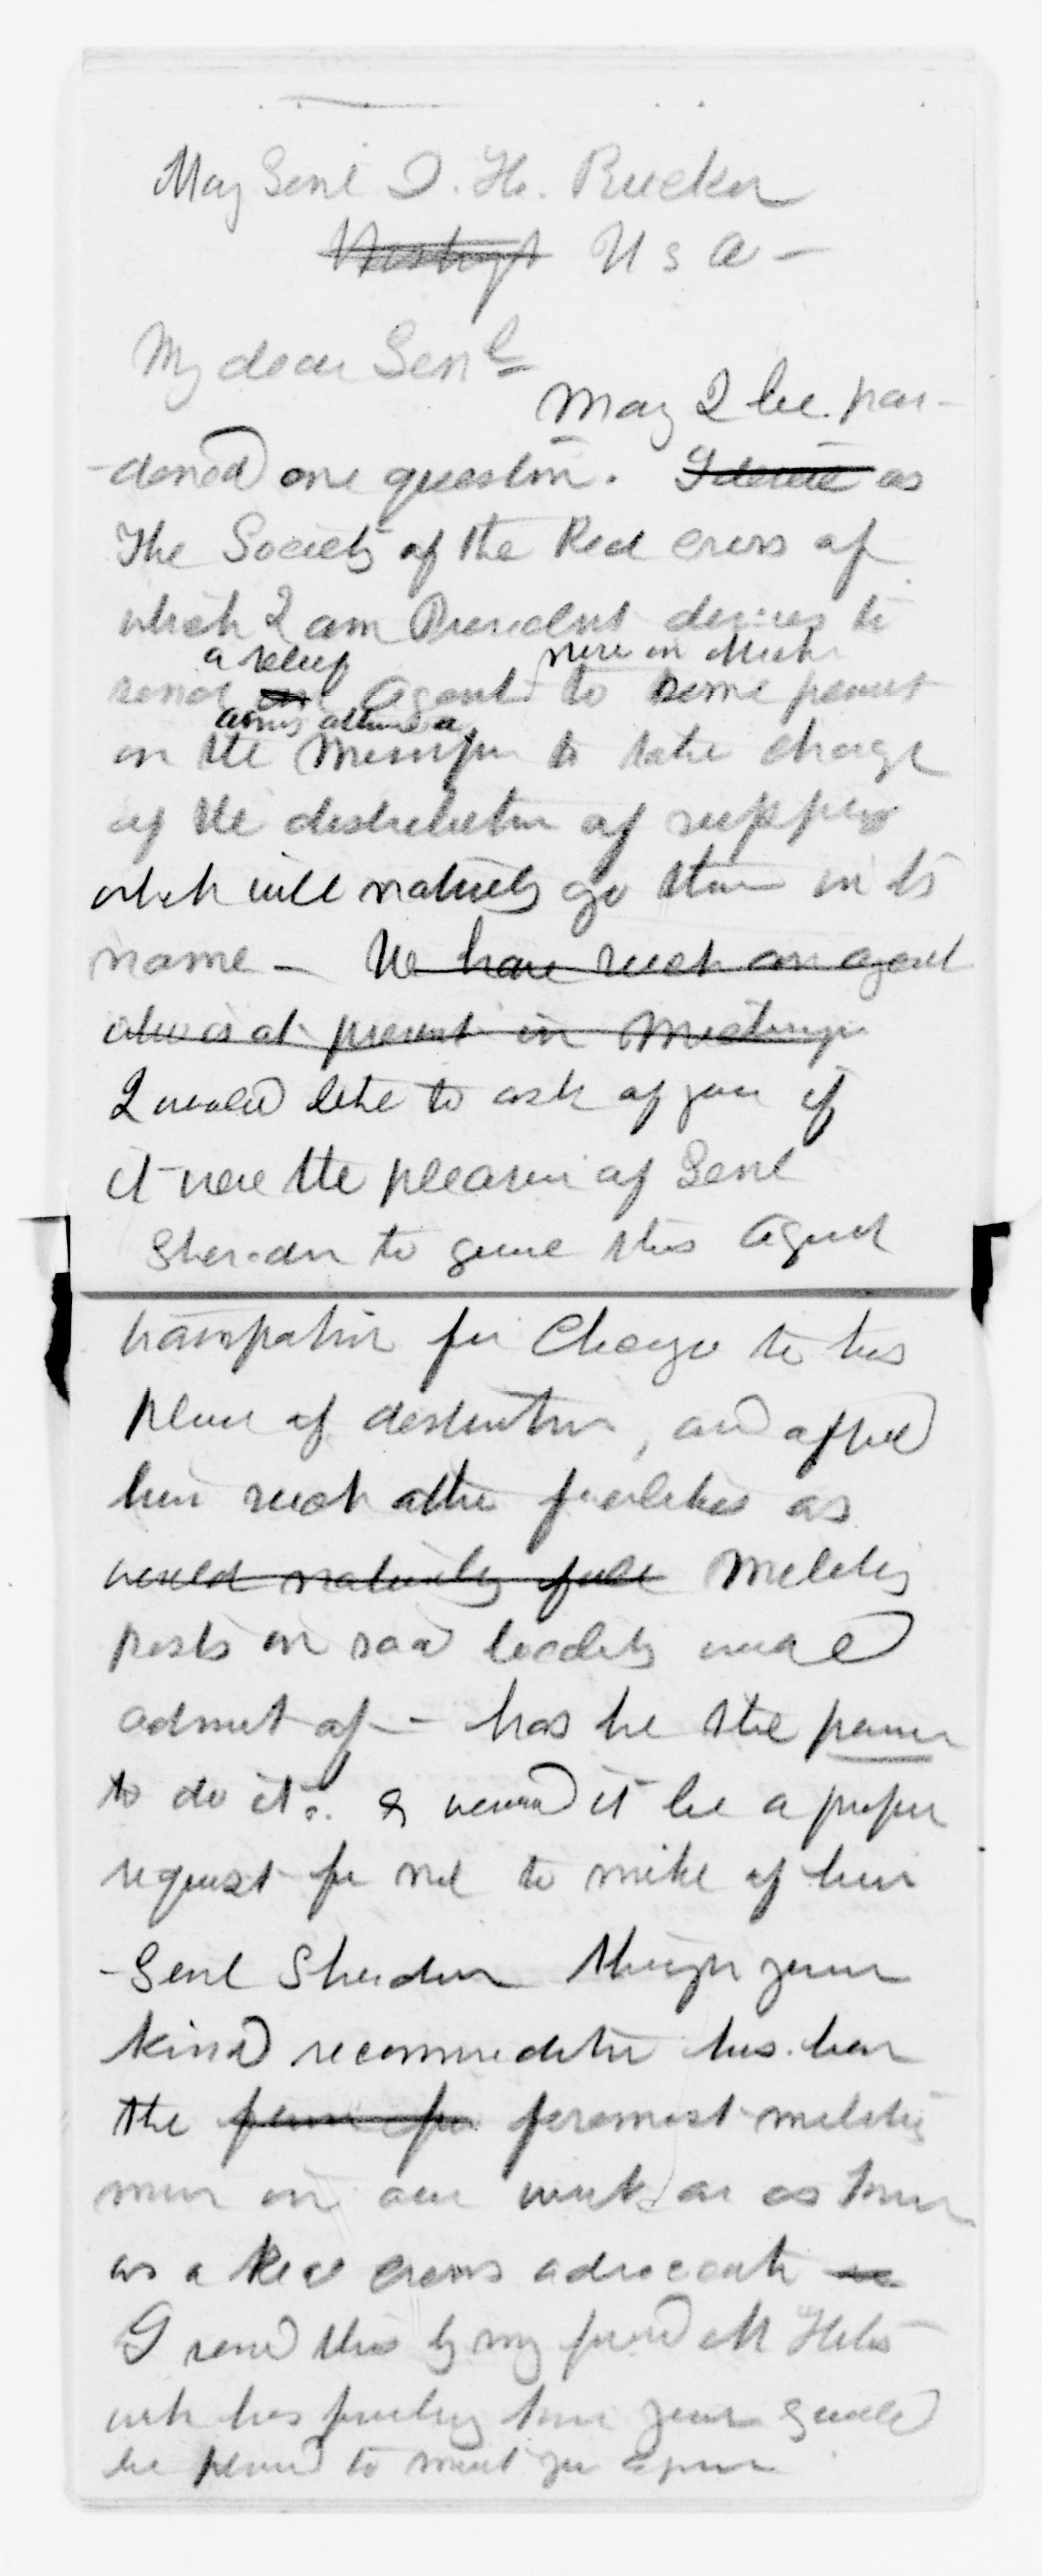 Maj Genl D. H. Rucker
Washngt U S A -
My dear Genl
May I be par-
-doned one question. I desire as
The Society of the Red cross of
which I am President desires to
a relief now in Mich
send an Agent to some point
on the Missispi to take charge
of the distribution of supplies
which will naturly go there in its
name - We have such an agent
who is at present in Michign
I would like to ask of you if
it were the pleasure of Genl
Sheridn to give this Agent
transpatin for Chicago to his
place of destination, and afford
him such other facilities as
would naturaly fall Military
posts in said locality would
admit of - has he the power
to do it. & would it be a proper
request for me to make of him
- Genl Sheridan through your
kind recommedatin
the foremost military
man in our as
as a Red cross advocate
I send this by my friend Mr
with his family know your & would
be pleased to meet you again